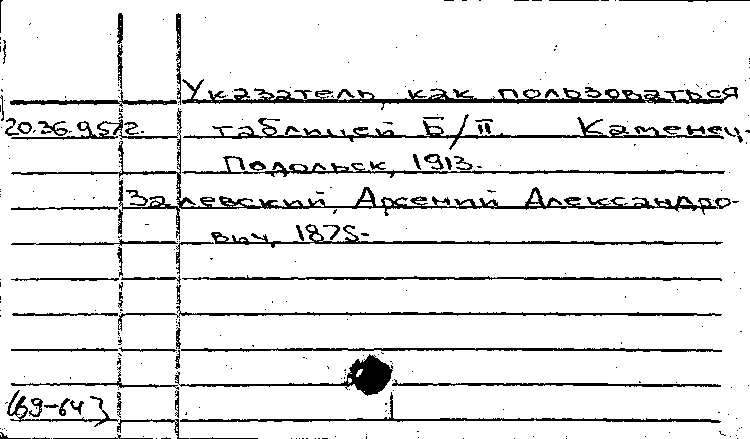 Указатель, как пользоваться
20.36.95/2. таблицей Б/П. Каменец-
Подольск, 1913.
Залевский, Арсений Александро-
вич, 1875-
(69-64)